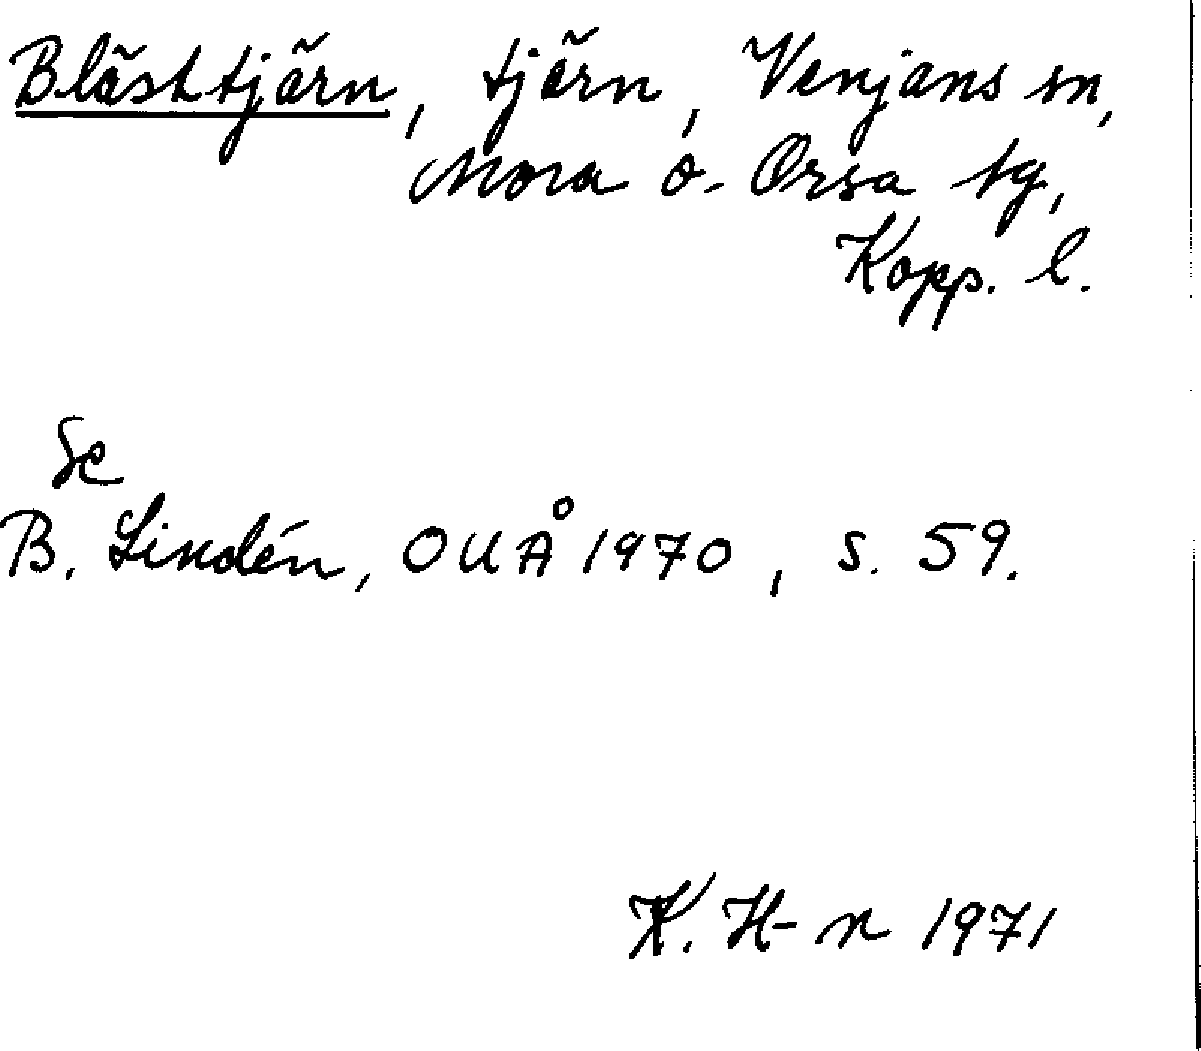 Bläshtjärn, tjärn, Venjans sn,
Mora o. Orsa tg,
Kopp. l.
Se
B. Lindén, OUÅ 1970, s. 59.
K. H-n 1971